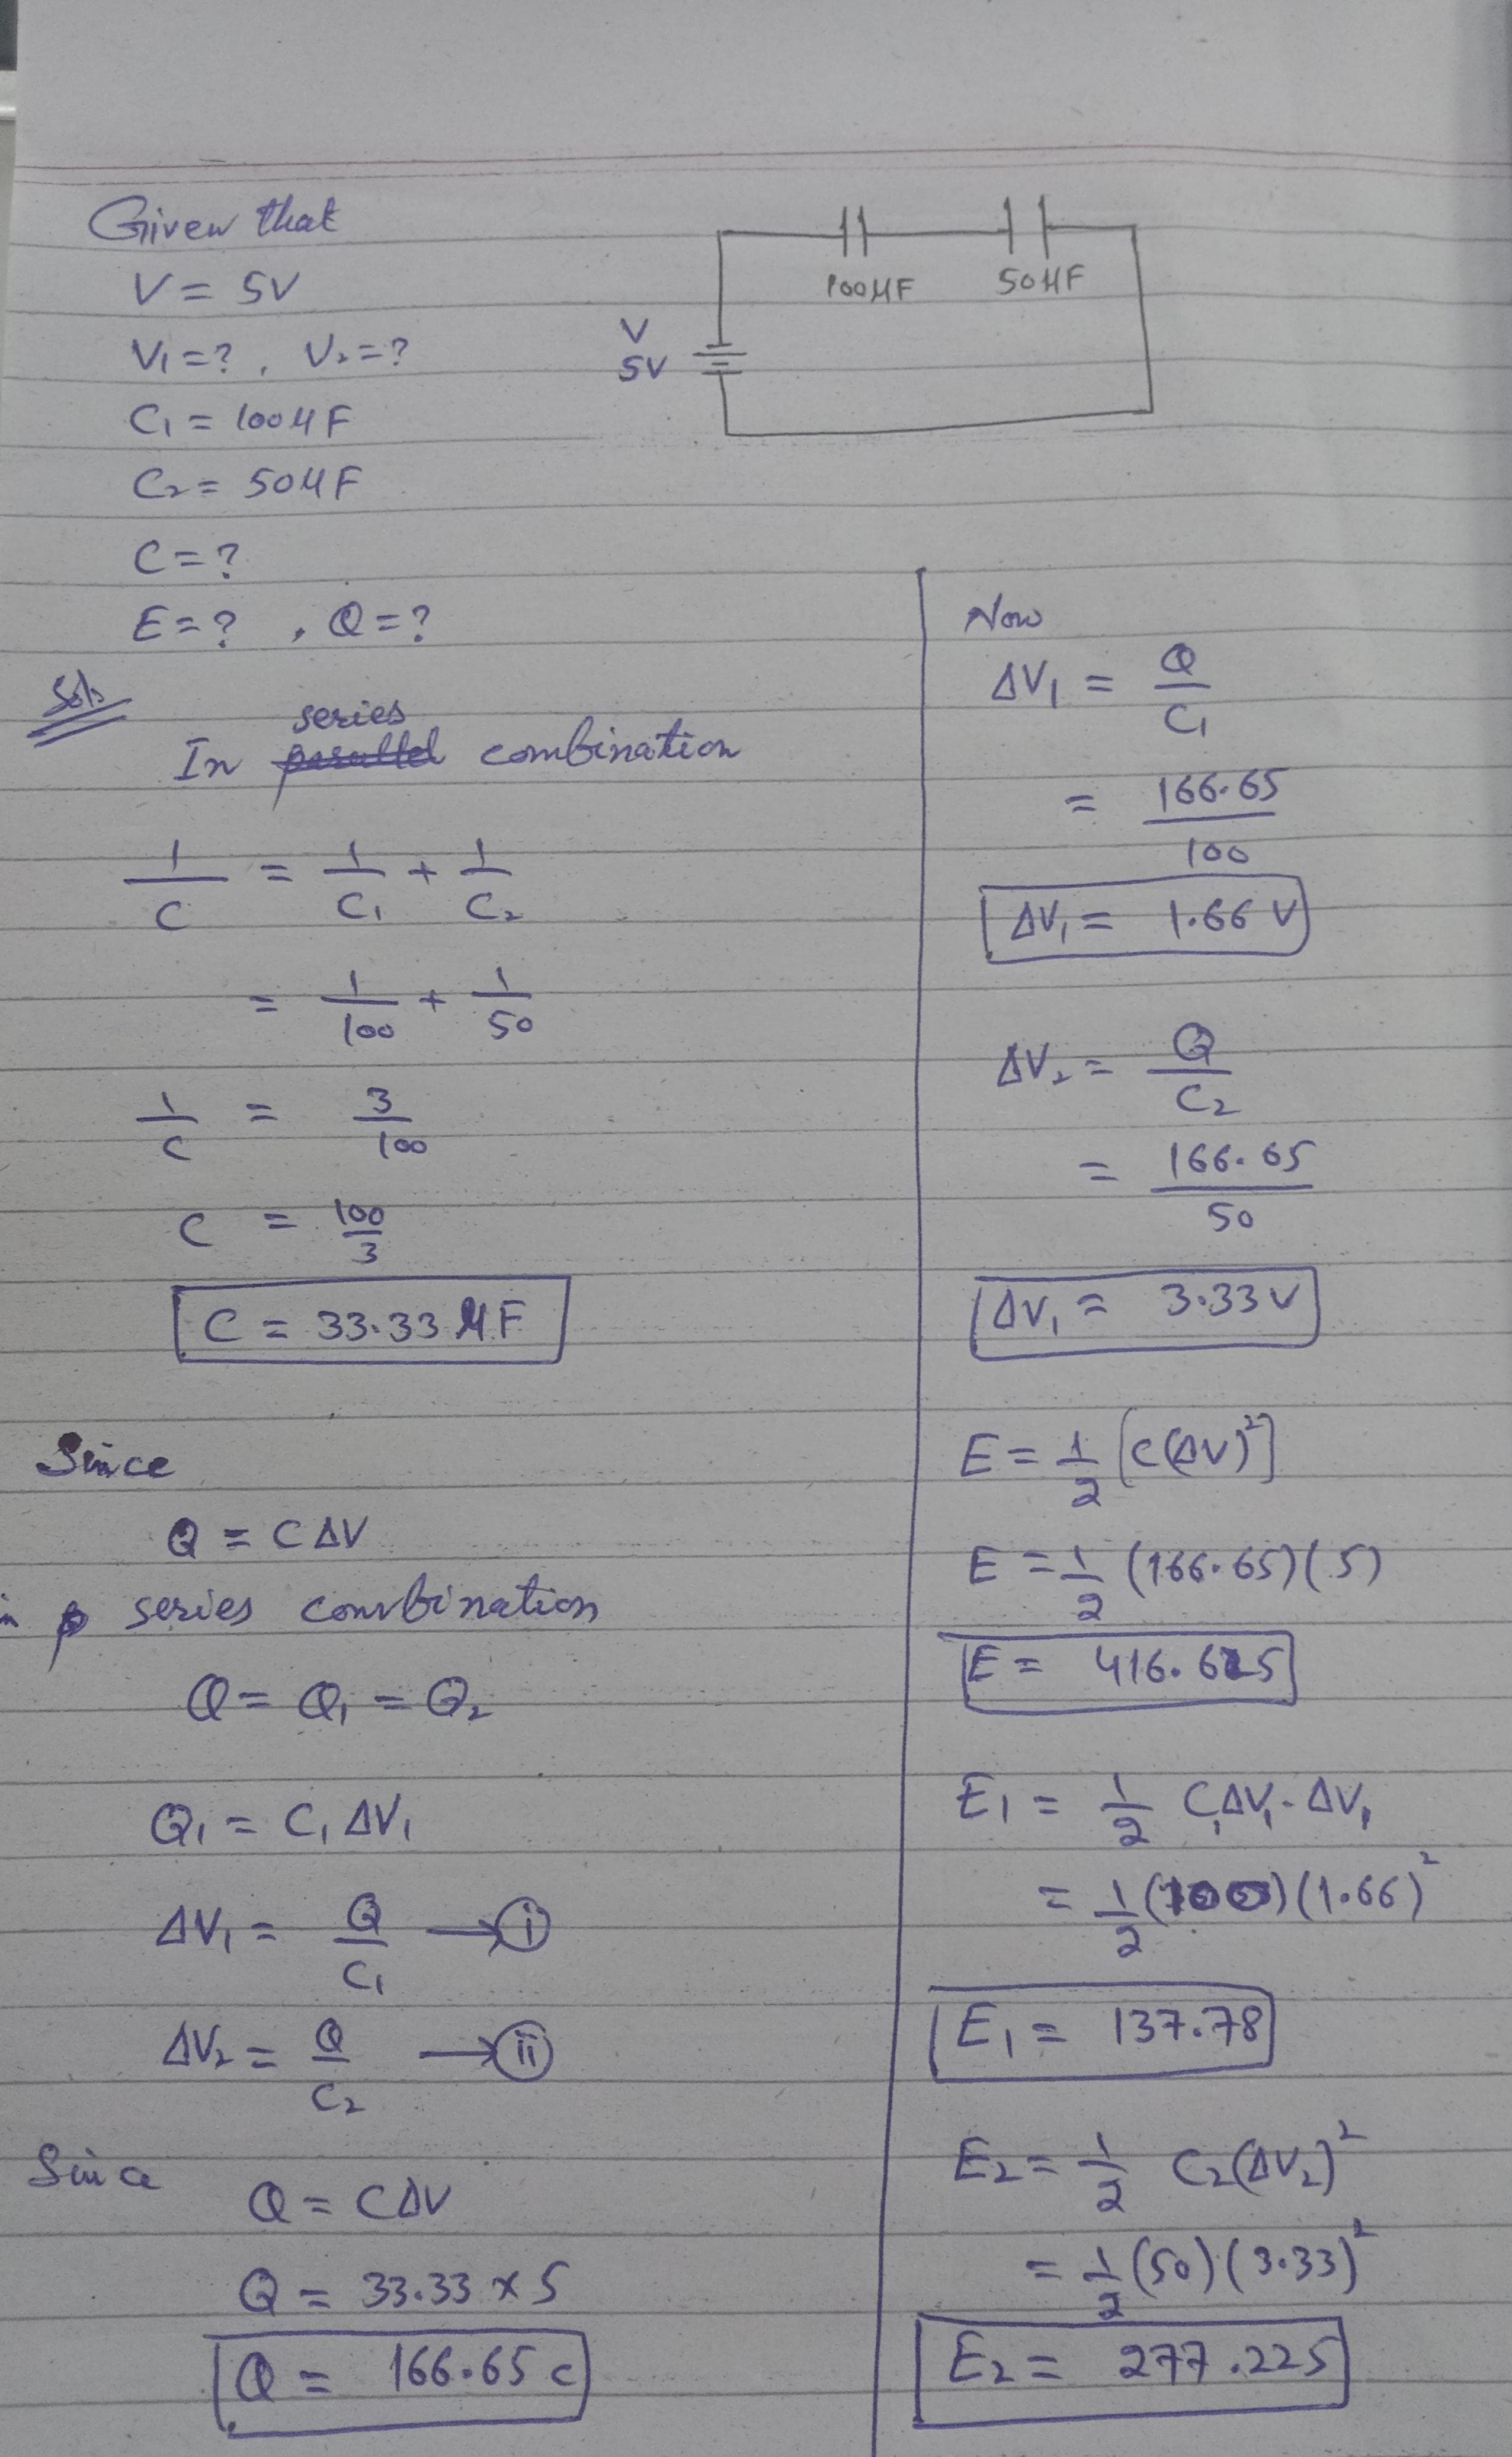 Given that
V = 5V
V₁ = ? , V₂ = ?
C₁ = 100μF
C₂ = 50μF
C = ?
E = ? , Q = ?
100μF 50μF
V
5V
Sol:
series
In parallel combination
1/C = 1/C₁ + 1/C₂
= 1/100 + 1/50
1/C = 3/100
C = 100/3
C = 33.33 μF
Since
Q = CΔV
in series combination
Q = Q₁ = Q₂
Q₁ = C₁ ΔV₁
ΔV₁ = Q/C₁ → (i)
ΔV₂ = Q/C₂ → (ii)
Since
Q = CΔV
Q = 33.33 × 5
Q = 166.65 C
Now
ΔV₁ = Q/C₁
= 166.65/100
ΔV₁ = 1.66 V
ΔV₂ = Q/C₂
= 166.65/50
ΔV₁ = 3.33 V
E = 1/2 [C(ΔV)²]
E = 1/2 (166.65)(5)
E = 416.625
E₁ = 1/2 C₁ΔV₁·ΔV₁
= 1/2 (100)(1.66)²
E₁ = 137.78
E₂ = 1/2 C₂(ΔV₂)²
= 1/2 (50)(3.33)²
E₂ = 277.225